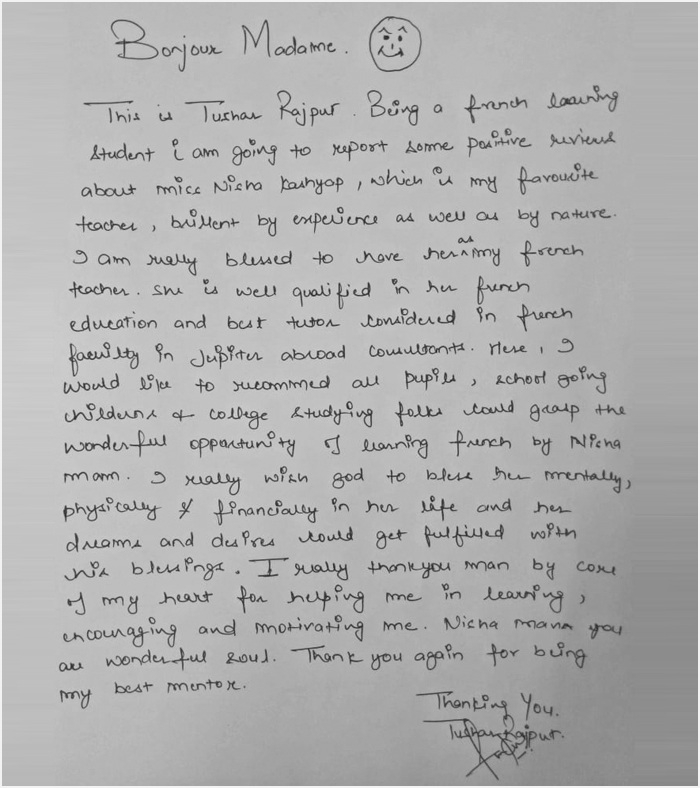 Bonjour Madame.
This is Tushar Rajpur. Being a french learning
student i am going to report some positive reviews
about miss Nisha Kashyap, which is my favourite
teacher, brillent by experience as well as by nature.
I am really blessed to have her as my french
teacher. She is well qualified in her french
education and best tutor considered in french
faculty in Jupiter abroad consultants. Here, I
would like to recommed all pupils, school going
childrens & college studying folks could grasp the
wonderful opportunity of learning french by Nisha
mam. I really wish god to bless her mentally,
physically & financially in her life and her
dreams and desires could get fulfilled with
his blessings. I really thankyou mam by core
of my heart for helping me in learning,
encouraging and motivating me. Nisha mam you
are wonderful soul. Thank you again for being
my best mentor.
Thanking You.
Tushar Rajpur.